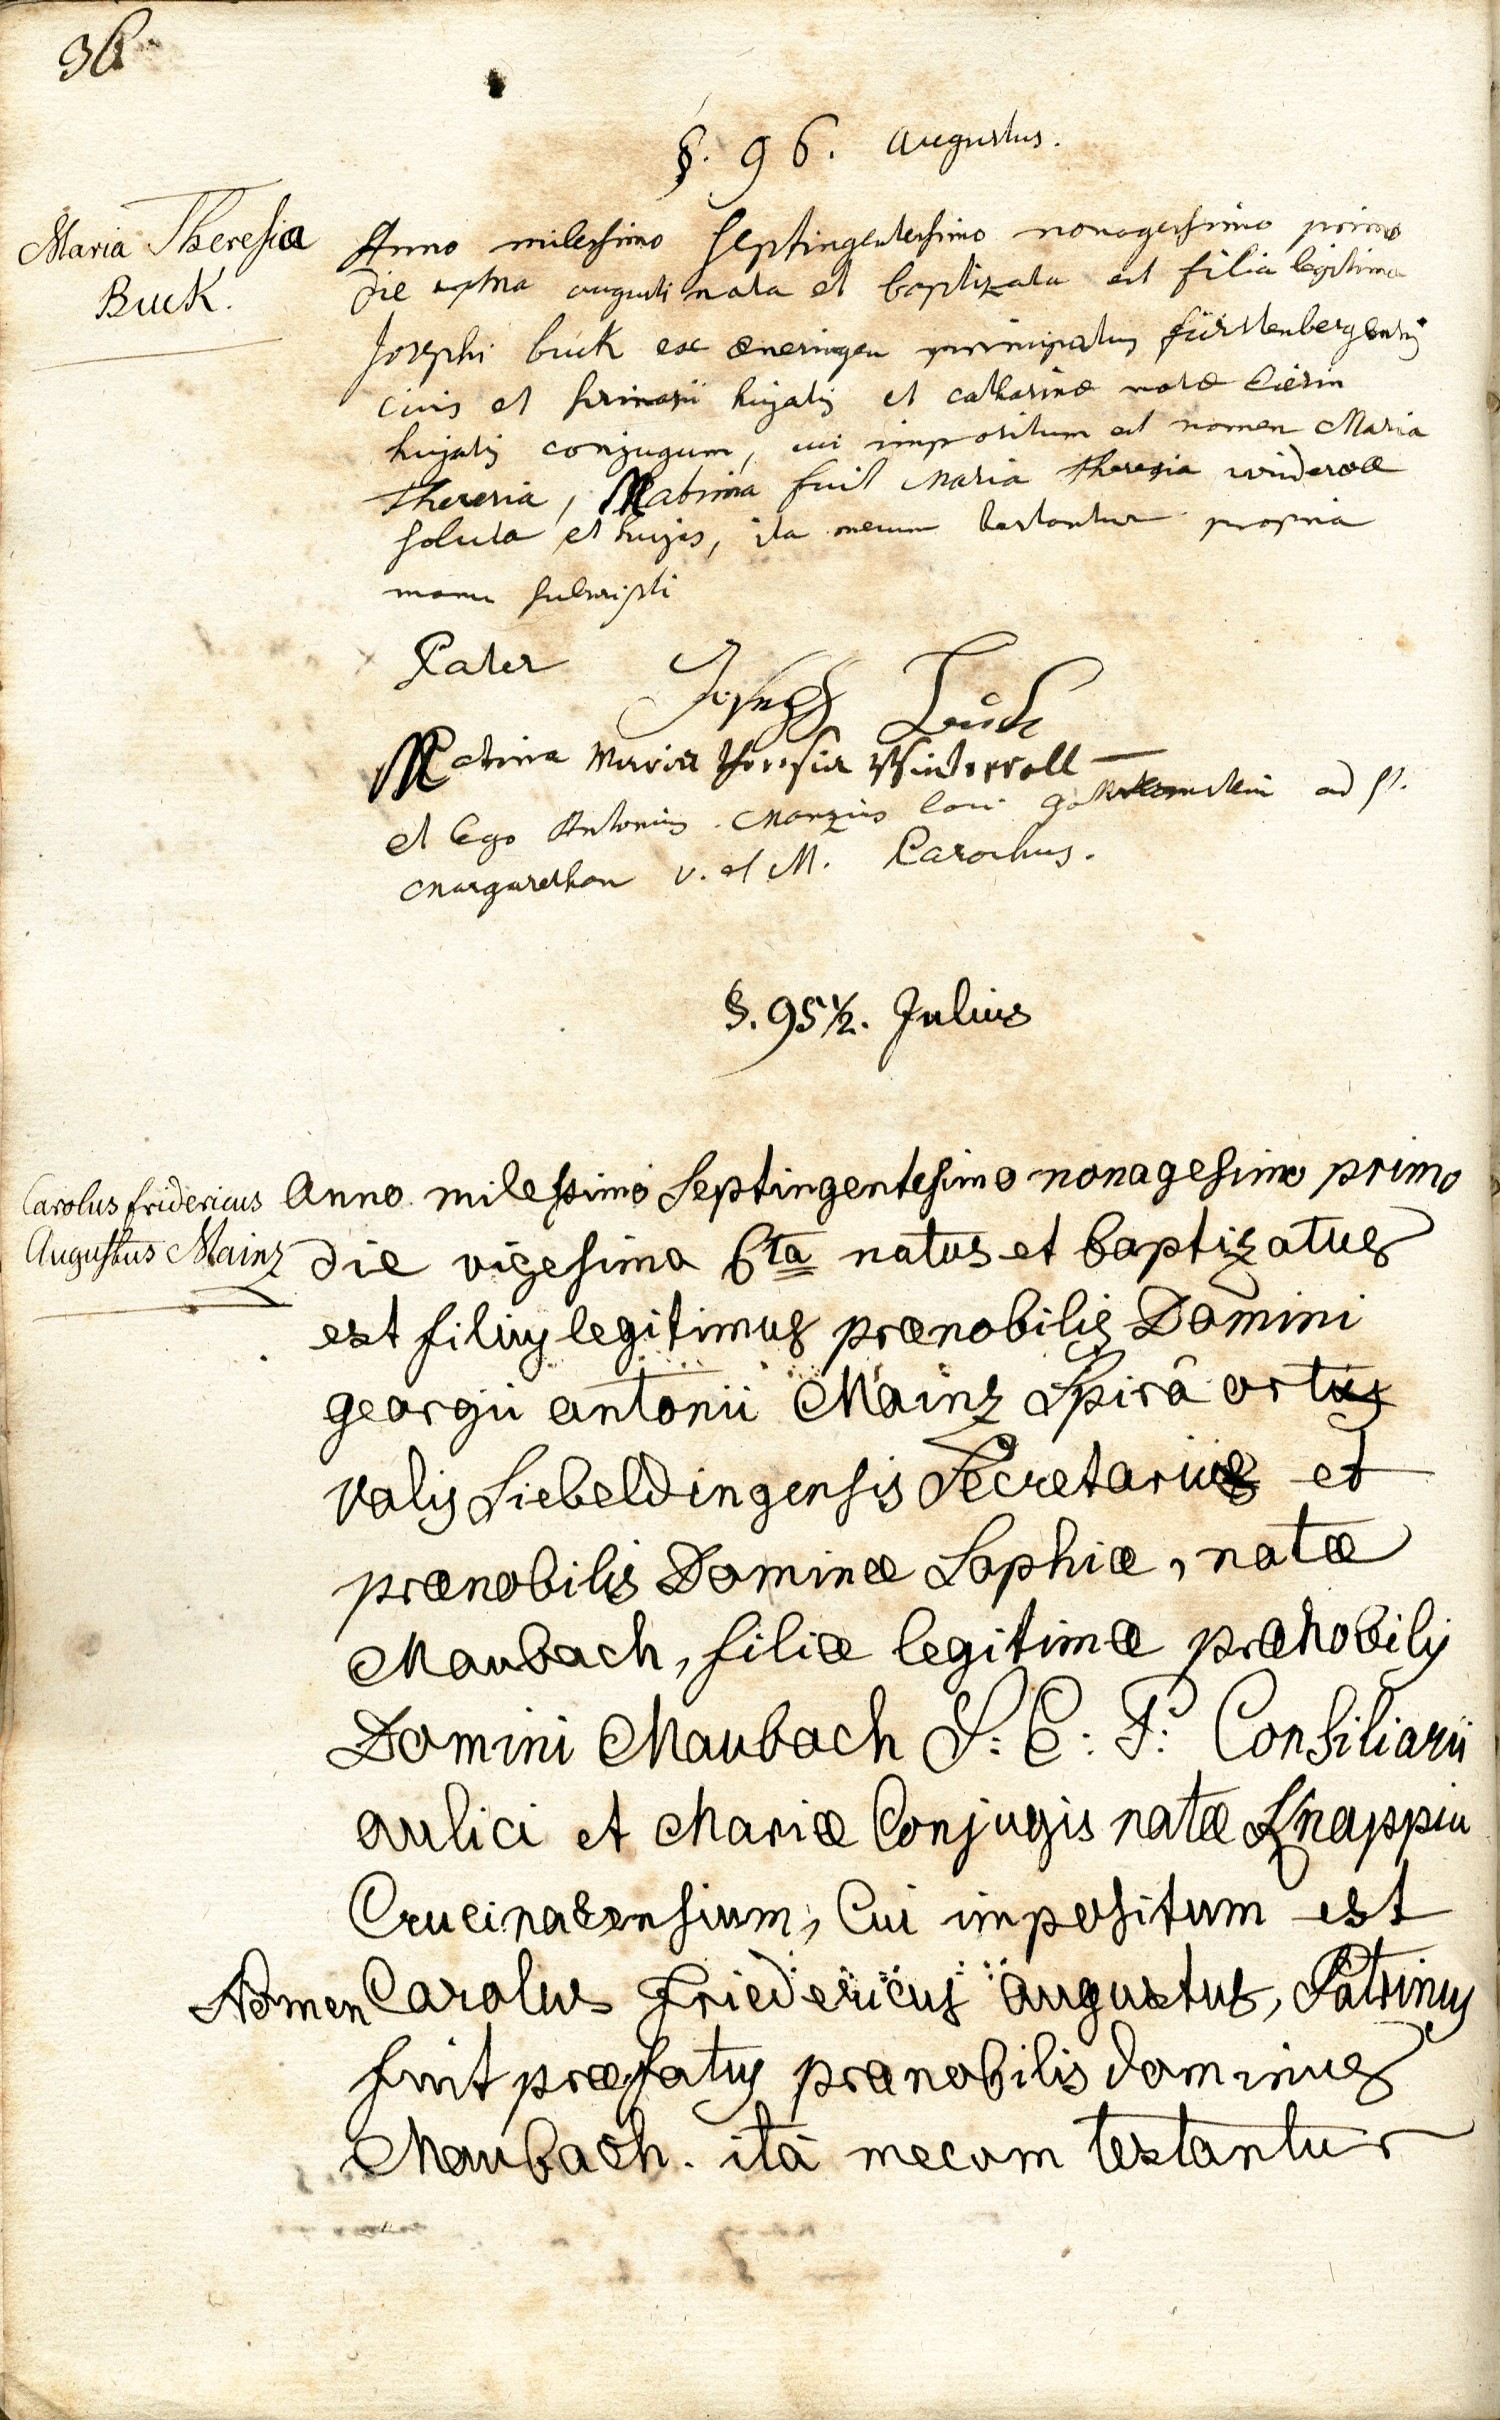 36
§. 96. Augustus.
Maria Theresia
Buck.
Anno milessimo septingentessimo nonagessimo primo
die augusti nata et baptizata est filia legitima
Josephi buck ex principatus fürstenbergensis
civis et hujatis et catharinæ natæ
hujatis conjugum, cui impositum est nomen Maria
Theresia, Matrina fuit Maria Theresia winderoll
soluta et hujas, ita mecum testantur propria
manu subscripti
Pater Joseph buck
Matrina Maria Theresia Winderroll
et Ego Antonius loci ad st.
Margaretham v. et M. Parochus.
§. 95½. Julius
Carolus fridericus
Augustus Mainz
Anno milessimo septingentesimo nonagesimo primo
die vigesima 6ta natus et baptizatus
est filius legitimus prænobilis Domini
georgii antonii Mainz Spirâ ortus
valis Siebeldingensis Secretarius et
prænobilis Dominæ Sophiæ, natæ
Maubach, filiæ legitimæ prænobilis
Domini Maubach S: E: P: Consiliarii
aulici et Mariæ Conjugis natæ Knappin
Crucinacensium, Cui impositum est
Nomen Carolus Friedericus augustus, Patrinus
fuit præfatus prænobilis dominus
Maubach. ita mecum testantur